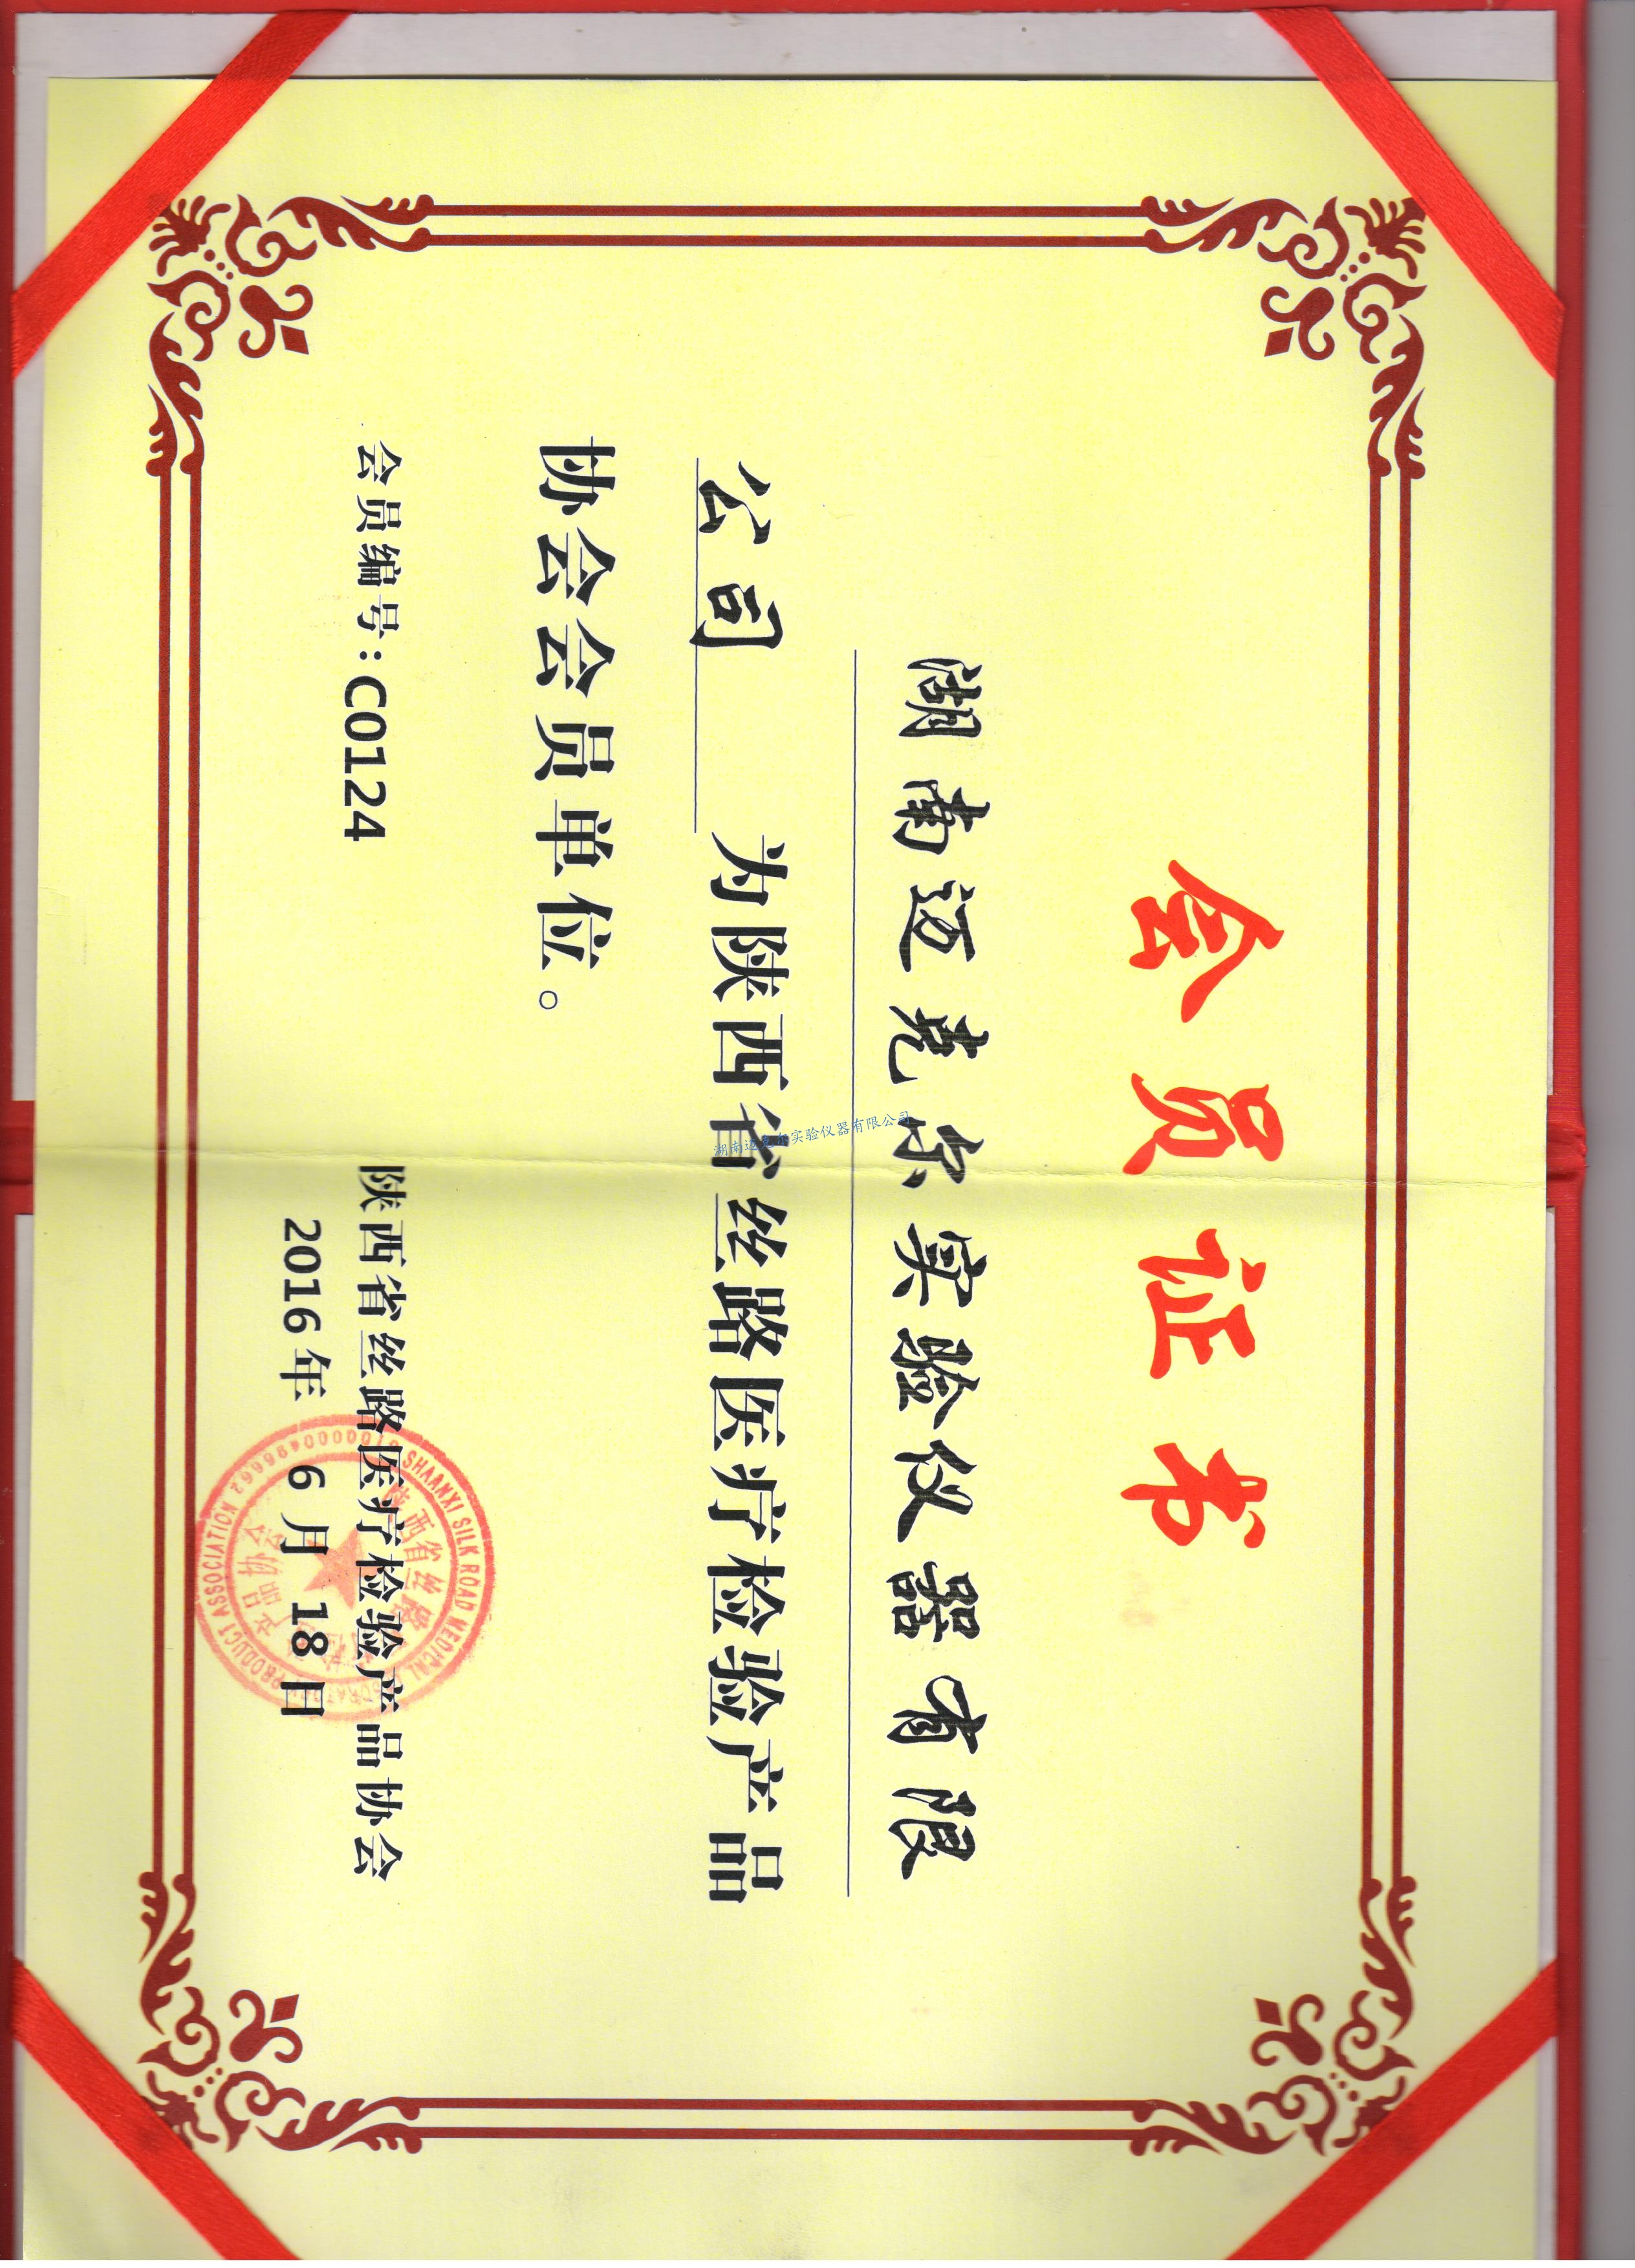 会员证书
湖南迈克尔实验仪器有限
公司 为陕西省丝路医疗检验产品
协会会员单位。
会员编号:C0124
陕西省丝路医疗检验产品协会
2016年 6月 18日
SHAANXI SILK ROAD MEDICAL PRODUCT ASSOCIATION
陕西省丝路
产品协会
湖南迈克尔实验仪器有限公司